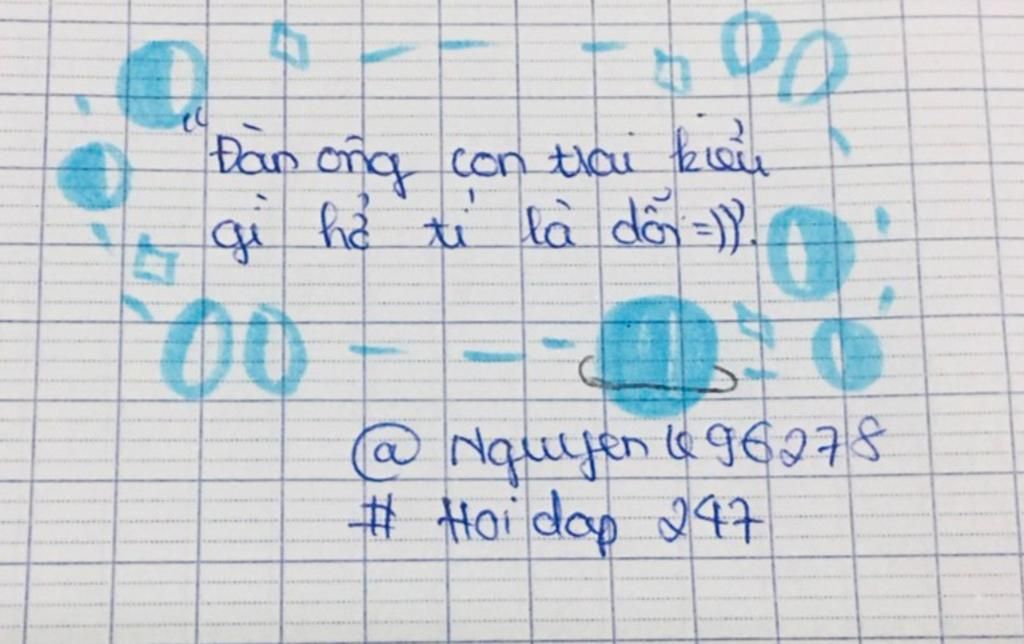 "Đàn ông con trai kiểu
gì hở tí là dỗi =))".
@ Nguyen
# Hoidap 247